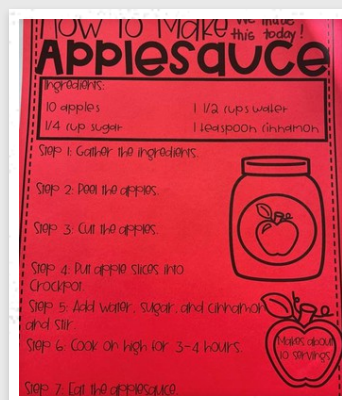 How to Make
We made
this today!
Applesauce
Ingredients:
10 apples
1 1/2 cups water
1/4 cup sugar
1 teaspoon cinnamon
Step 1: Gather the ingredients.
Step 2: Peel the apples.
Step 3: Cut the apples.
Step 4: Put apple slices into
Crockpot.
Step 5: Add water, sugar, and cinnamon
and stir.
Step 6: Cook on high for 3-4 hours.
Makes about
10 servings
Step 7: Eat the applesauce.